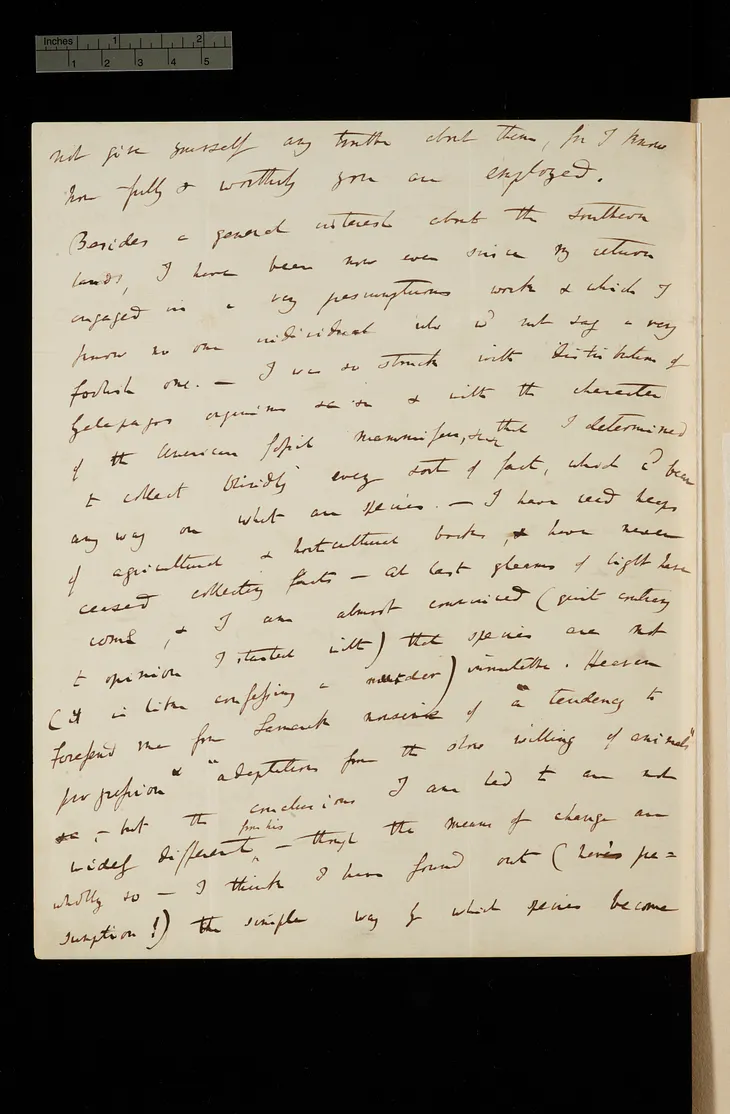 Inches 1 2
1 2 3 4 5
not give yourself any trouble about them, for I know
how fully & worthily you are employed.
Besides a general interest about the Southern
lands, I have been now ever since my return
engaged in a very presumptuous work & which I
know no one individual who wd not say a very
foolish one. — I was so struck with distribution of
Galapagos organisms &c &c & with the character
of the American fossil mammifers, &c &c that I determined
to collect blindly every sort of fact, which cd bear
any way on what are species. — I have read heaps
of agricultural & horticultural books, & have never
ceased collecting facts — At last gleams of light have
come, & I am almost convinced (quite contrary
to opinion I started with) that species are not
(it is like confessing a murder) immutable. Heaven
forefend me from Lamarck nonsense of "a tendency to
progression" "adaptations from the slow willing of animals"
&c, — but the conclusions I am led to are not
widely different from his — though the means of change are
wholly so — I think I have found out (here's pre=
sumption!) the simple way by which species become